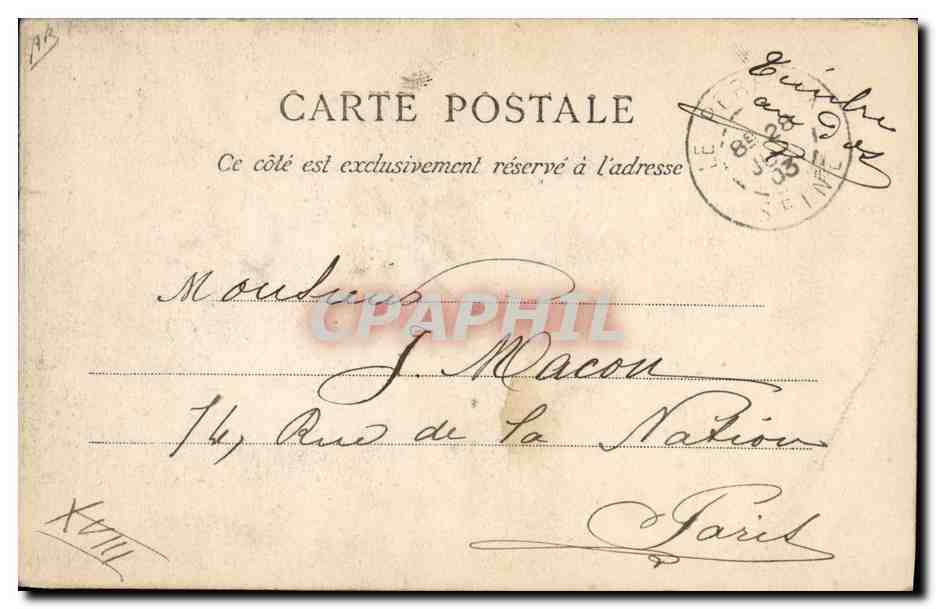 AR
CARTE POSTALE
Timbre
au Dos
Ce côté est exclusivement réservé à l'adresse
LE
8E
28
03
SEINE
Monsieur
CPAPHIL
J. Macon
14, Rue de la Nation
Paris
XVIII